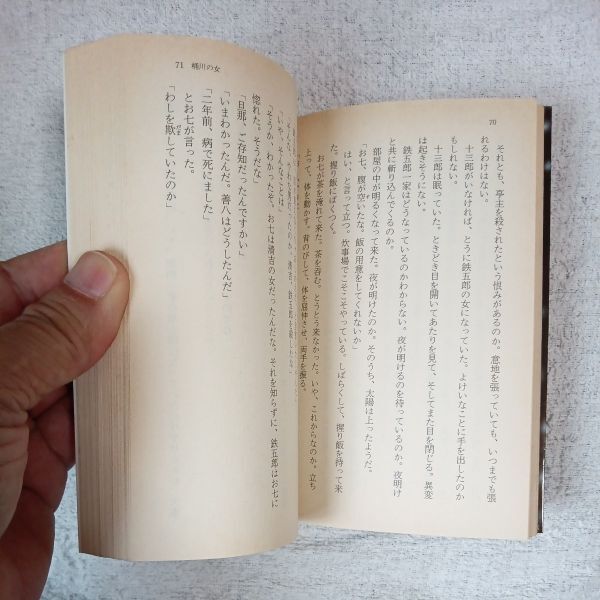 70
それとも、亭主を殺されたという恨みがあるのか。意地を張っていても、いつまでも張
れるわけはない。
十三郎がいなければ、とうに鉄五郎の女になっていた。よけいなことに手を出したのか
もしれない。
十三郎は眠っていた。ときどき目を開いてあたりを見て、そしてまた目を閉じる。異変
は起きそうにない。
鉄五郎一家はどうなっているのかわからない。夜が明けるのを待っているのか。夜明け
と共に斬り込んでくるのか。
部屋の中が明るくなって来た。夜が明けたのか。そのうち、太陽は上ったようだ。
「お七、腹が空いたな。飯の用意をしてくれないか」
はい、と言って立つ。炊事場でこそこそやっている。しばらくして、握り飯を持って来
た。握り飯にぱくつく。
お七が茶を淹れて来た。茶を呑む。とうとう来なかった。いや、これからなのか。立ち
上って、体を動かす。背のびして、体を屈伸させ、両手を振る。
71 桶川の女
「いや、なんでも
「そうか、わかったぞ。お七は清吉の女だったんだな。それを知らずに、鉄五郎はお七に
惚れた。そうだな」
「旦那、ご存知だったんですかい」
「いまわかったんだ。善八はどうしたんだ」
「二年前、病で死にました」
とお七が言った。
「わしを欺していたのか」
だま